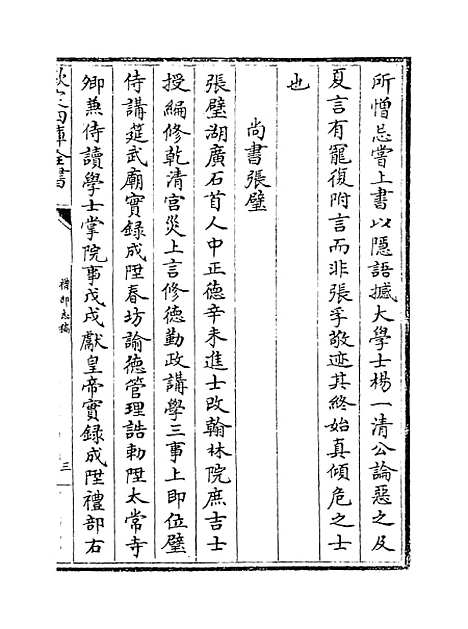 所憎忌嘗上書以隱語撼大學士楊一清公論惡之及
夏言有寵復附言而非張孚敬迹其終始真傾危之士
也
尚書張璧
張璧湖廣石首人中正德辛未進士改翰林院庶吉士
授編修乾清宮災上言修德勤政講學三事上即位璧
侍講筵武廟實録成陞春坊諭德管理誥勅陞太常寺
卿兼侍讀學士掌院事戊戌獻皇帝實録成陞禮部右
欽定四庫全書
禮部志稿
三